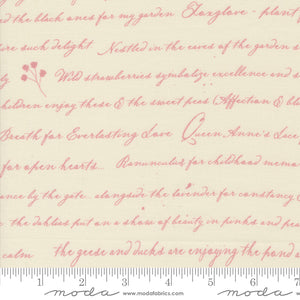 d the black ones for my garden Foxglove - plant
ere such delight Nestled in the eaves of the garden s
ly Wild strawberries symbolize excellence and s
children enjoy these & the sweet peas (Affection & bl
Breath for Everlasting Love Queen Anne's Lace
for open hearts... Ranunculus for childhood memo
ance by the gate... alongside the lavender for constancy &
the dahlias put on a show of beauty in pinks and pea
calm the geese and ducks are enjoying the pond a
1 2 3 4 5 6 7
moda modafabrics.com moda